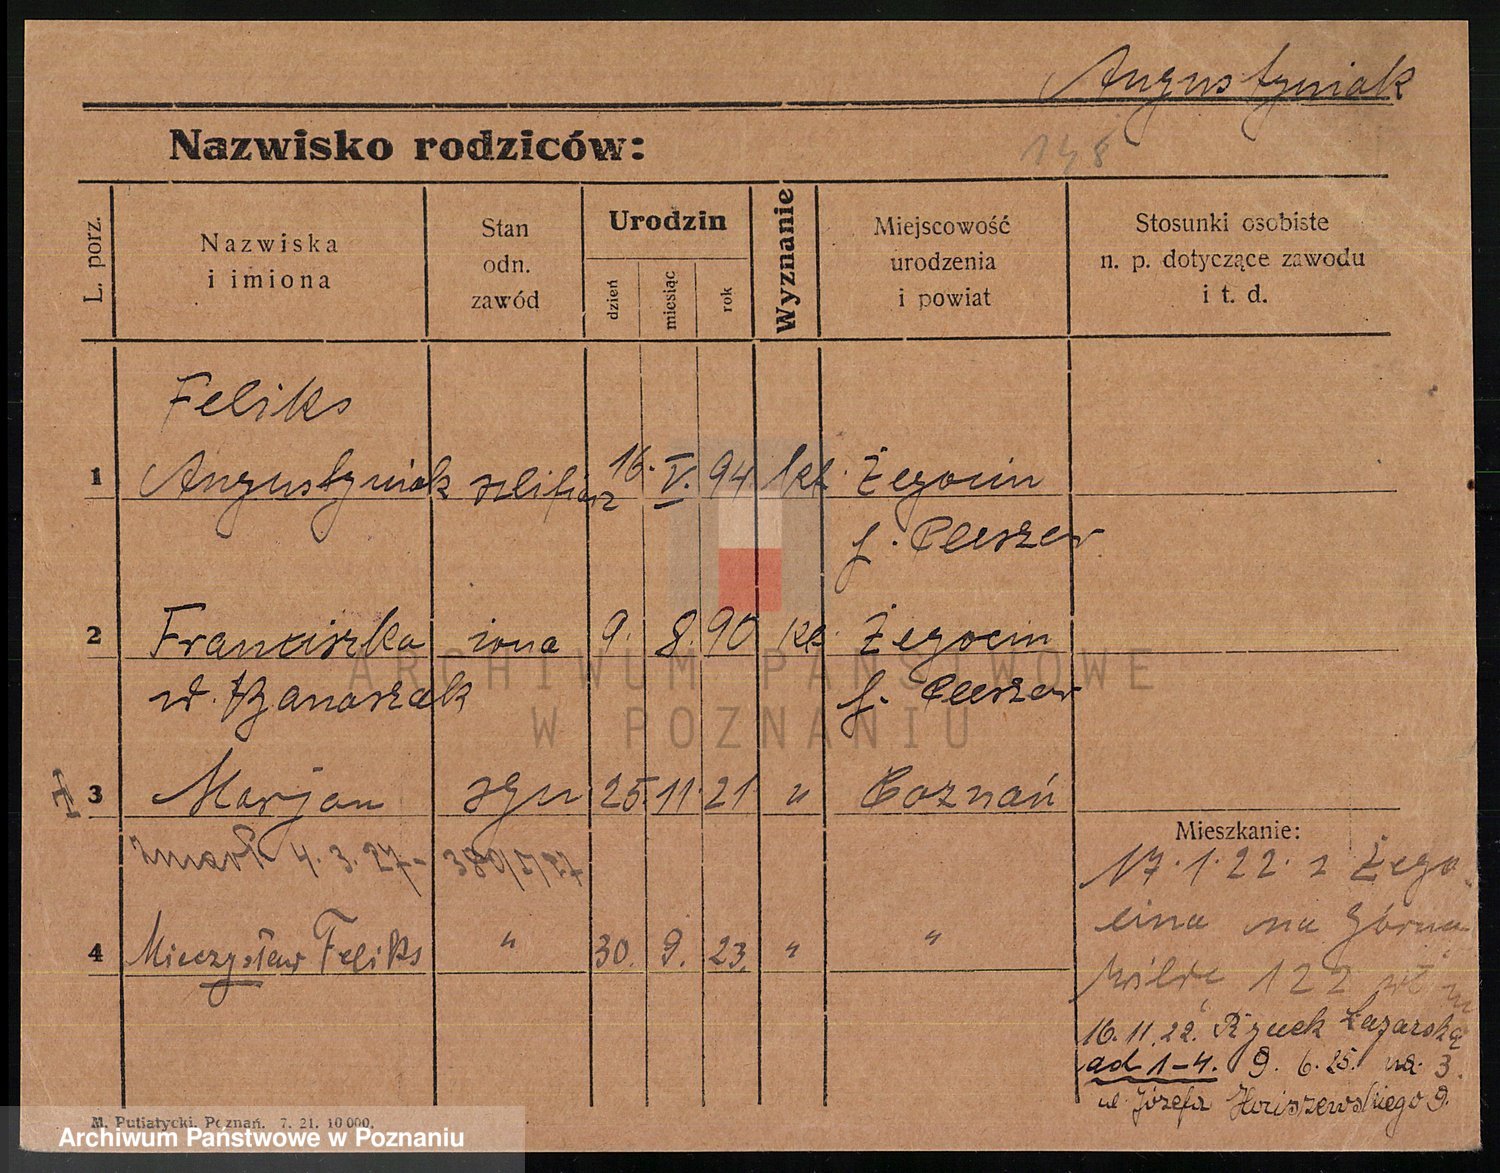 Augustyniak
148
Nazwisko rodziców:
L. porz.
Nazwiska
i imiona
Stan
odn.
zawód
Urodzin
dzień
miesiąc
rok
Wyznanie
Miejscowość
urodzenia
i powiat
Stosunki osobiste
n. p. dotyczące zawodu
i t. d.
Feliks
1 Augustyniak szlifierz 16. V. 94. kt. Żegocin
p. Pleszew
2 Franciszka żona 9. 8. 90 kt. Żegocin
p. Pleszew
3 Marjan syn 25. 11. 21 " Poznań
zmarł 4. 3. 27 - 380/5/27
4 Mieczysław Feliks " 30. 9. 23. " "
Mieszkanie:
17. 1. 22. z Żego-
cina na Górna
Wilda 122
16. 11. 22. Rynek Łazarski
ad 1-4. 9. 6. 25. na
ul. Józefa 9.
M. Putiatycki, Poznań. 7. 21. 10 000.
ARCHIWUM PAŃSTWOWE
W POZNANIU
Archiwum Państwowe w Poznaniu